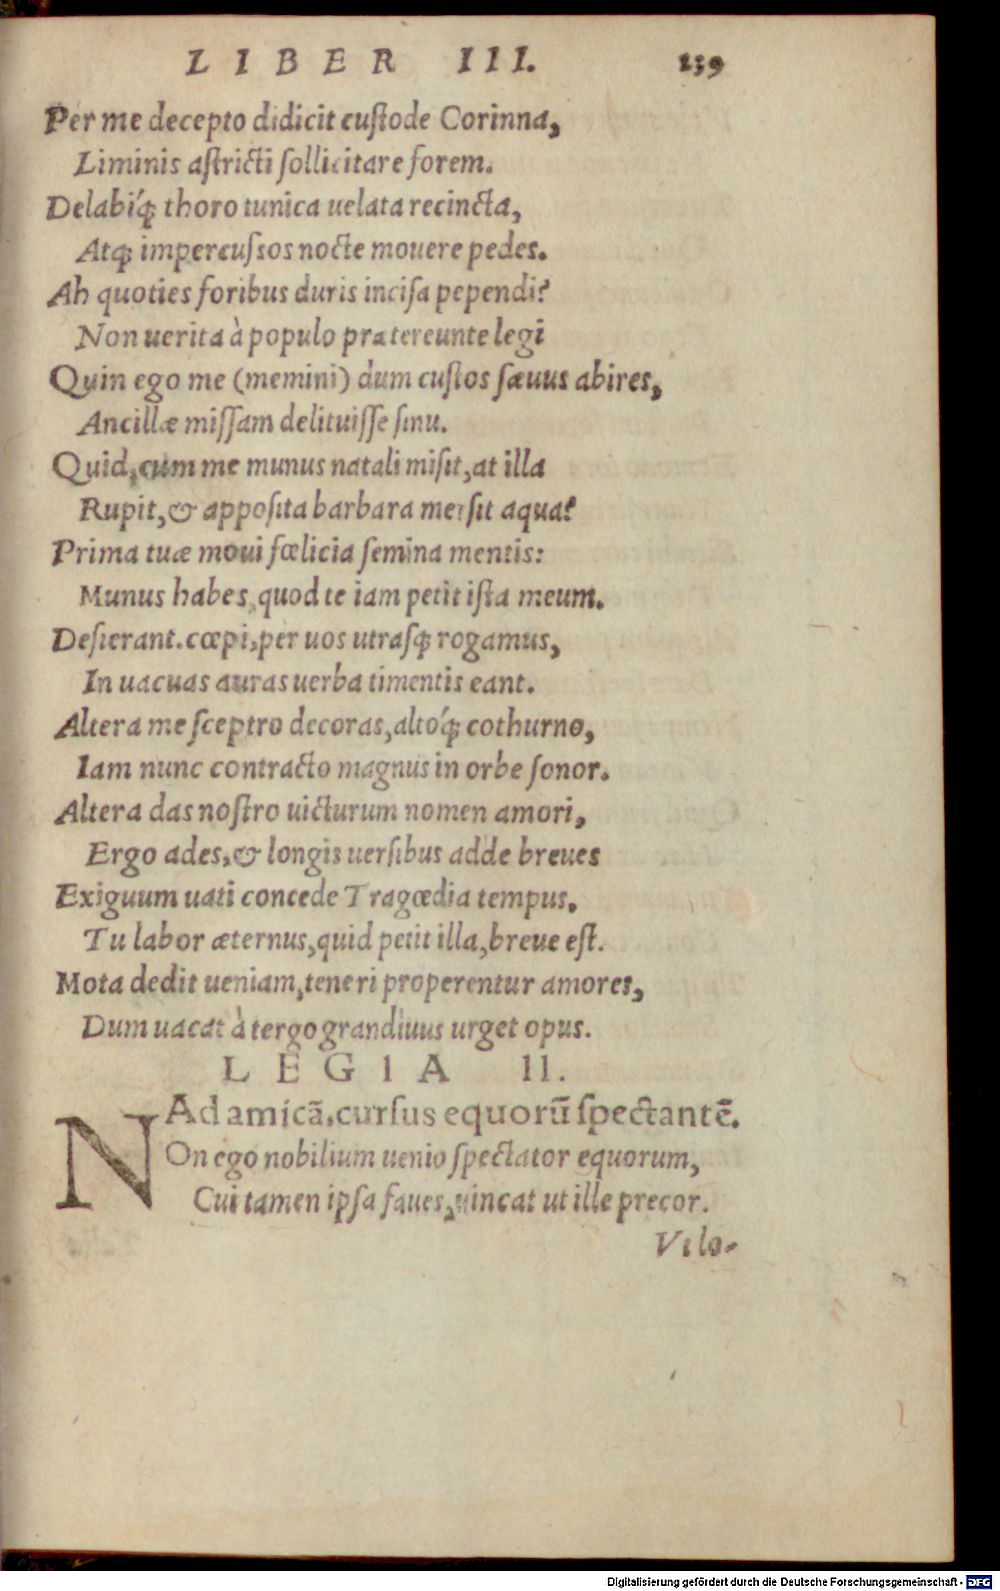 LIBER III. 239
Per me decepto didicit custode Corinna,
Liminis astricti sollicitare forem.
Delabiq́; thoro tunica uelata recincta,
Atq; impercussos nocte mouere pedes.
Ah quoties foribus duris incisa pependi?
Non uerita à populo prætereunte legi
Quin ego me (memini) dum custos sæuus abires,
Ancillæ missam delituisse sinu.
Quid, cum me munus natali misit, at illa
Rupit, & apposita barbara mersit aqua?
Prima tuæ moui fœlicia semina mentis:
Munus habes, quod te iam petit ista meum.
Desierant. cœpi, per uos utrasq; rogamus,
In uacuas auras uerba timentis eant.
Altera me sceptro decoras, altoq́; cothurno,
Iam nunc contracto magnus in orbe sonor.
Altera das nostro uicturum nomen amori,
Ergo ades, & longis uersibus adde breues
Exiguum uati concede Tragœdia tempus,
Tu labor æternus, quid petit illa, breue est.
Mota dedit ueniam, teneri properentur amores,
Dum uacat à tergo grandiuus urget opus.
LEGIA II.
Ad amicã, cursus equorũ spectantẽ.
NOn ego nobilium uenio spectator equorum,
Cui tamen ipsa faues, uincat ut ille precor.
Vt lo-
Digitalisierung gefördert durch die Deutsche Forschungsgemeinschaft - DFG